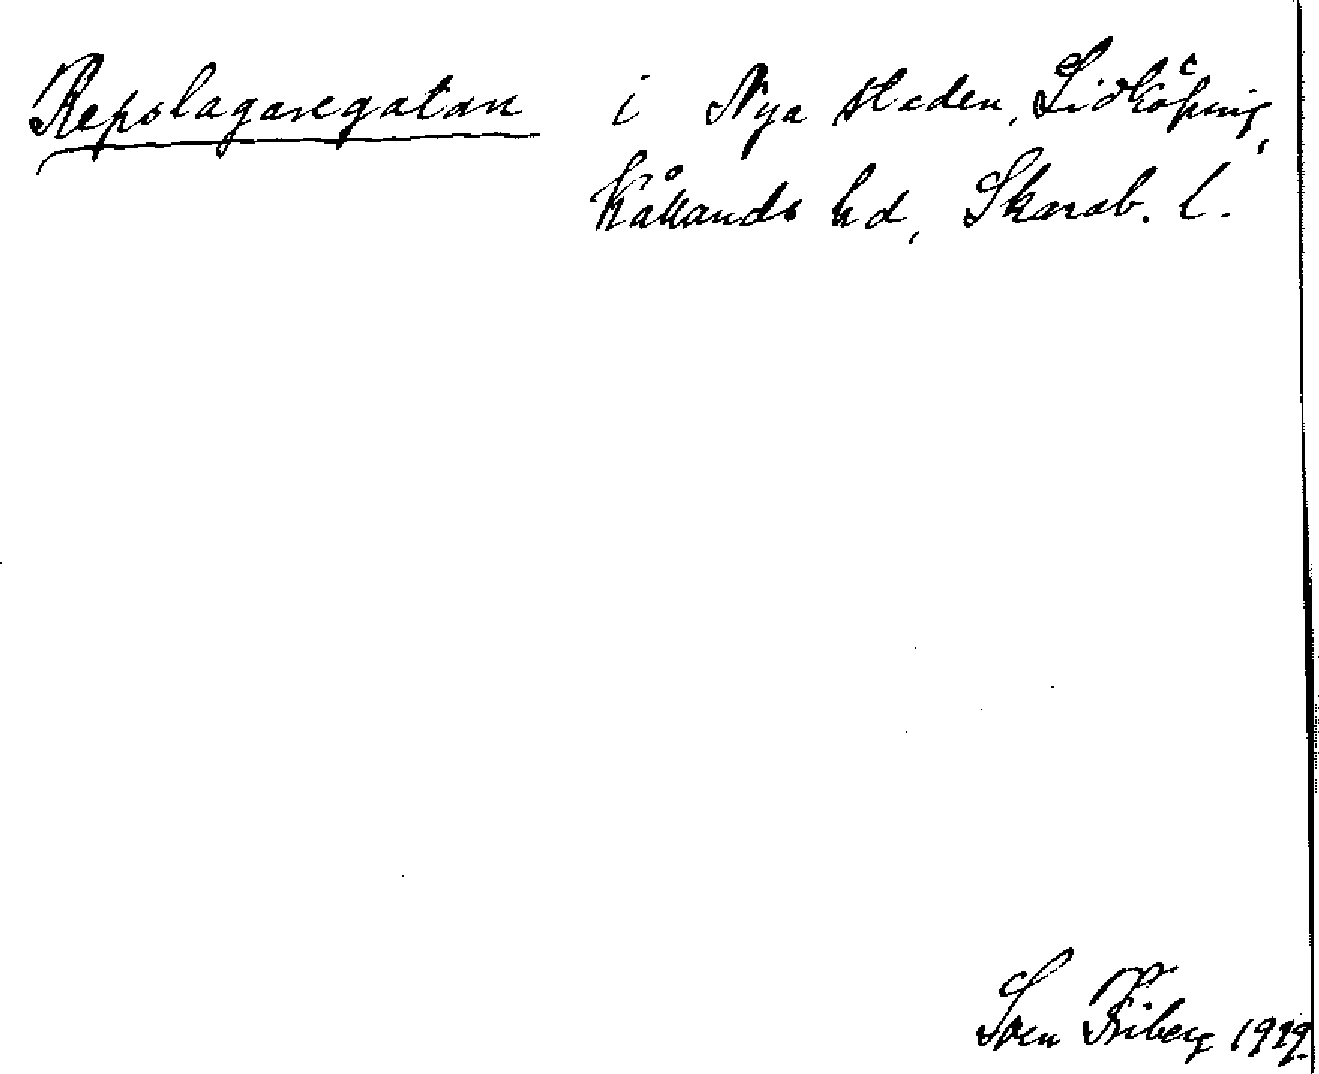 Repslagaregatan i Nya staden, Lidköping,
Kållands hd, Skarab. l.
Sven Friberg 1919.